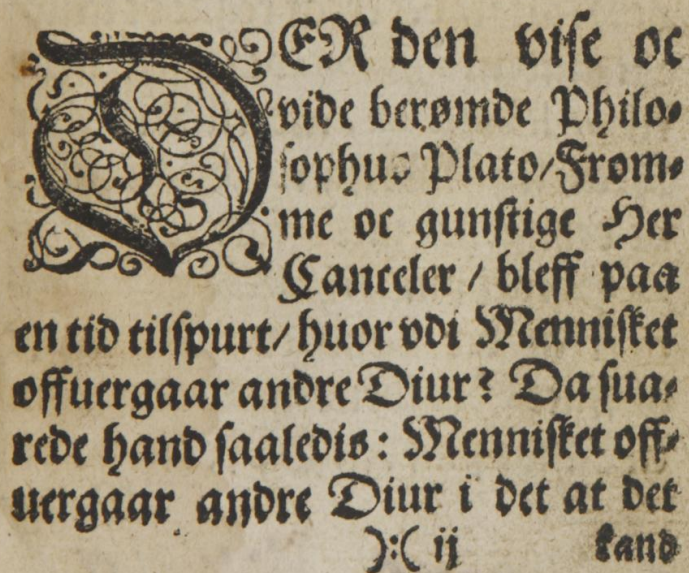 DER den vise oc
vide berømde Philo-
sophus Plato/From-
me oc gunstige Her
Canceler / bleff paa
en tid tilspurt/ huor vdi Mennisket
offuergaar andre Diur? Da sua-
rede hand saaledis: Mennisket off-
uergaar andre Diur i det at det
):( ij kand